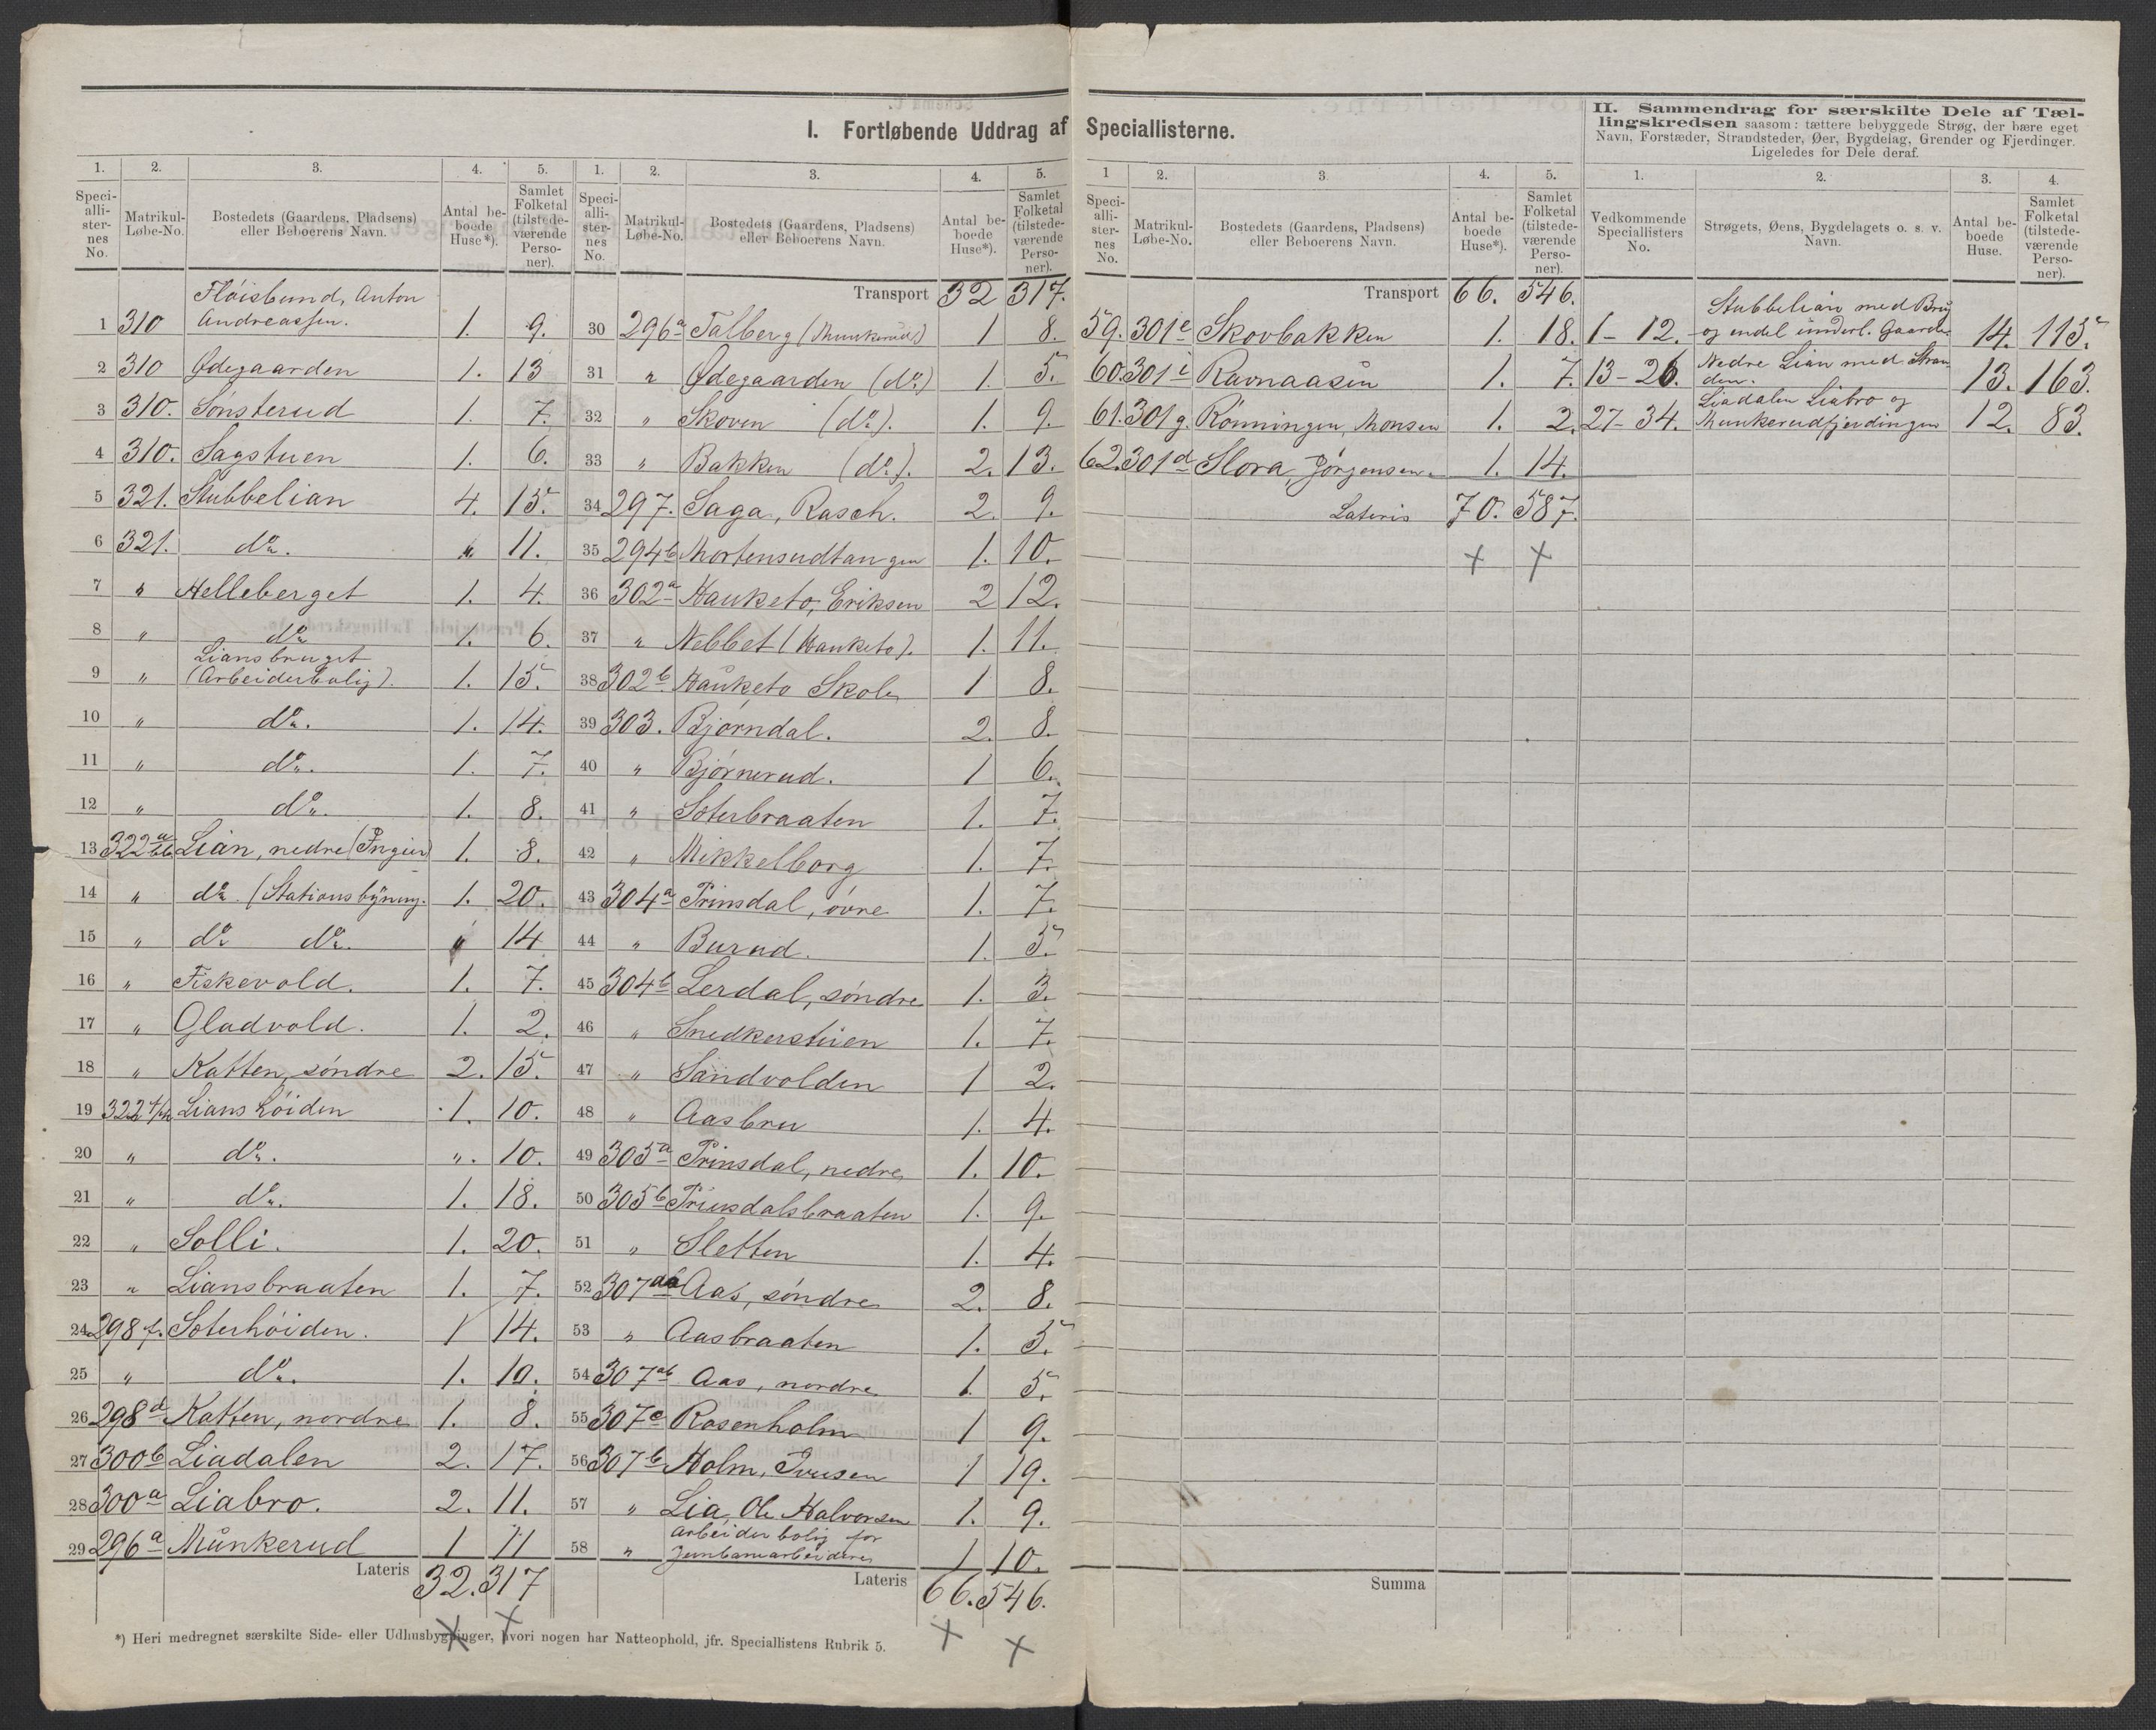 I. Fortløbende Uddrag af Speciallisterne.
II. Sammendrag for særskilte Dele af Tællingskredsen saasom: tættere bebyggede Strøg, der bære eget
Navn, Forstæder, Strandsteder, Øer, Bygdelag, Grender og Fjerdinger.
Ligeledes for Dele deraf.
1. 2. 3. 4. 5.
Speciallisternes No. Matrikul-Løbe-No. Bostedets (Gaardens, Pladsens) eller Beboerens Navn. Antal beboede Huse*). Samlet Folketal (tilstedeværende Personer).
Fløisbund, Anton
1 310 Andreassen. 1. 9.
2 310 Ødegaarden 1. 13
3 310. Sønsterud 1. 7.
4 310. Sagstuen 1. 6.
5 321. Stubbelian 4. 15.
6 321. do. " 11.
7 " Helleberget 1. 4.
8 " do 1. 6.
Liansbruget
9 " (Arbeiderbolig). 1. 15.
10 " do. 1. 14.
11 " do. 1. 7.
12 " do. 1. 8.
13 322 Lian, nedre (Ingier) 1. 8.
14 " do (Stationsbyning. 1. 20.
15 " do do. " 14
16 " Fiskevold. 1. 7.
17 " Gladvold. 1. 2.
18 " Katten, søndre 2. 15.
19 322 Lianshøiden 1. 10.
20 " do. ". 10.
21 " do. 1. 18.
22 " Solli. 1. 20.
23 " Liansbraaten 1. 7.
24 298 f. Soterhøiden. 1 14.
25 " do. 1. 10.
26 298d Katten, nordre 1. 8.
27 300b Liadalen 2. 17.
28 300a Liabro. 2. 11.
29 296a Munkerud 1 11
Lateris 32. 317
*) Heri medregnet særskilte Side- eller Udhusbygninger, hvori nogen har Natteophold, jfr. Speciallistens Rubrik 5.
1. 2. 3. 4. 5.
Speciallisternes No. Matrikul-Løbe-No. Bostedets (Gaardens, Pladsens) eller Beboerens Navn. Antal beboede Huse*). Samlet Folketal (tilstedeværende Personer).
Transport 32 317.
30 296a Talberg (Munkerud) 1 8.
31 " Ødegaarden (do) 1. 5.
32 " Skoven (do). 1. 9.
33 " Bakken (do). 2. 13.
34 297. Saga, Rasch. 2. 9.
35 294b Mortensudtangen 1. 10.
36 302a Hauketo, Eriksen 2 12.
37 " Nebbet (Hauketo). 1. 11.
38 302b Hauketo Skole 1 8.
39 303. Bjørndal. 2. 8.
40 " Bjørnerud. 1 6.
41 " Soterbraaten 1. 7.
42 " Mikkelborg 1. 7.
43 304a Prinsdal, øvre 1. 7.
44 " Burud. 1. 5.
45 304b Lerdal, søndre 1. 3.
46 " Snedkerstuen 1. 7.
47 " Sandvolden 1 2.
48 " Aasbru 1. 4.
49 305a Prinsdal, nedre 1. 10.
50 305b Prinsdalsbraaten 1. 9.
51 " Sletten 1. 4.
52 307 Aas, søndre 2. 8.
53 " Aasbraaten 1. 5.
54 307ab Aas, nordre 1. 5.
55 307c Rosenholm 1 9.
56 307b Holm, Iversen 1 19.
57 " Lia, Ole Halvorsen 1. 9.
Arbeiderbolig for
58 " Jernbanearbeidere 1 10.
Lateris 66. 546.
1 2. 3. 4. 5.
Speciallisternes No. Matrikul-Løbe-No. Bostedets (Gaardens, Pladsens) eller Beboerens Navn. Antal beboede Huse*). Samlet Folketal (tilstedeværende Personer).
Transport 66. 546.
59. 301e Skovbakken 1. 18.
60. 301i Ravnaasen 1. 7.
61. 301g. Rønningen, Monsen 1. 2.
62. 301d Slora, Jørgensen. 1. 14.
Lateris 70. 587.
Summa
1. 2. 3. 4.
Vedkommende Speciallisters No. Strøgets, Øens, Bygdelagets o. s. v. Navn. Antal beboede Huse. Samlet Folketal (tilstedeværende Personer).
Stubbelian med Brug
1 – 12. og endel underl. Gaarde. 14. 115.
Nedre Lian med Stran-
13 – 26. den. 13. 163.
Liadalen Liabro og
27 – 34. Munkerudfjerdingen 12. 83.